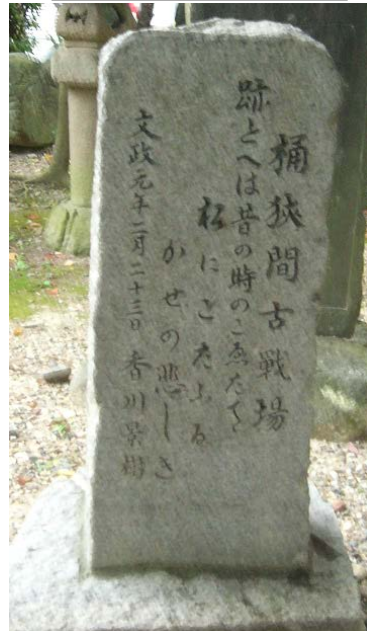 桶狭間古戦場
跡とへは昔の時のこゑたてゝ
松にこたふる
かせの悲しき
文政元年二月二十三日 香川景樹